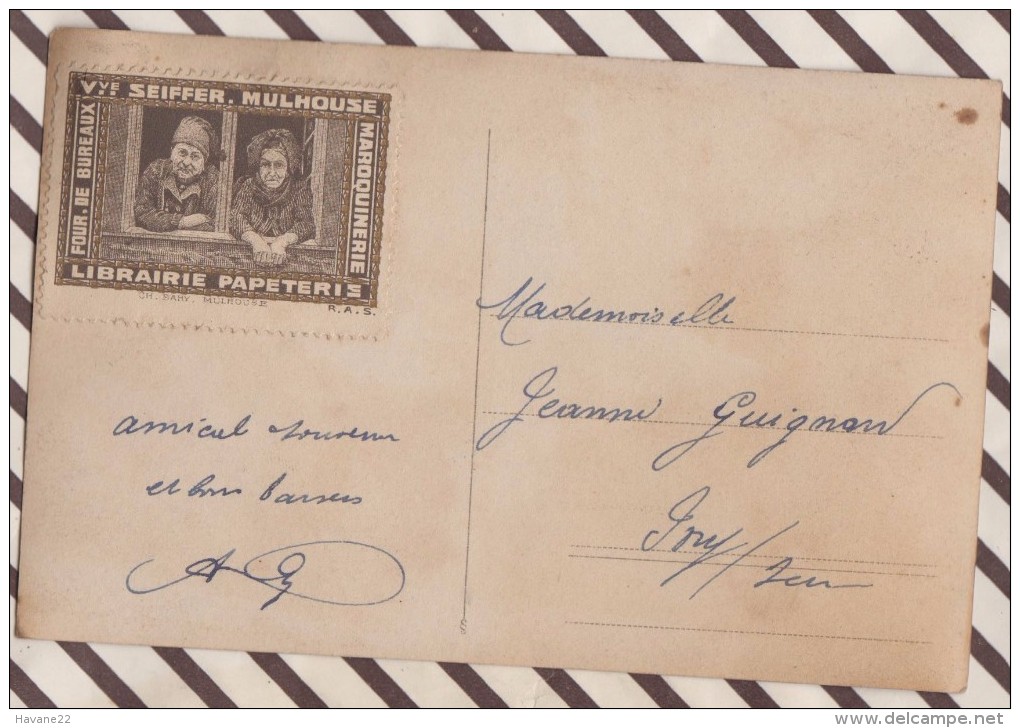 Vve SEIFFER. MULHOUSE
FOUR. DE BUREAUX
MAROQUINERIE
LIBRAIRIE PAPETERIE
CH. BAHY. MULHOUSE
R.A.S.
Mademoiselle
Jeanne Guignard
Ivry/Seine
amical souvenir
et bons baisers
Havane22
www.delcampe.net